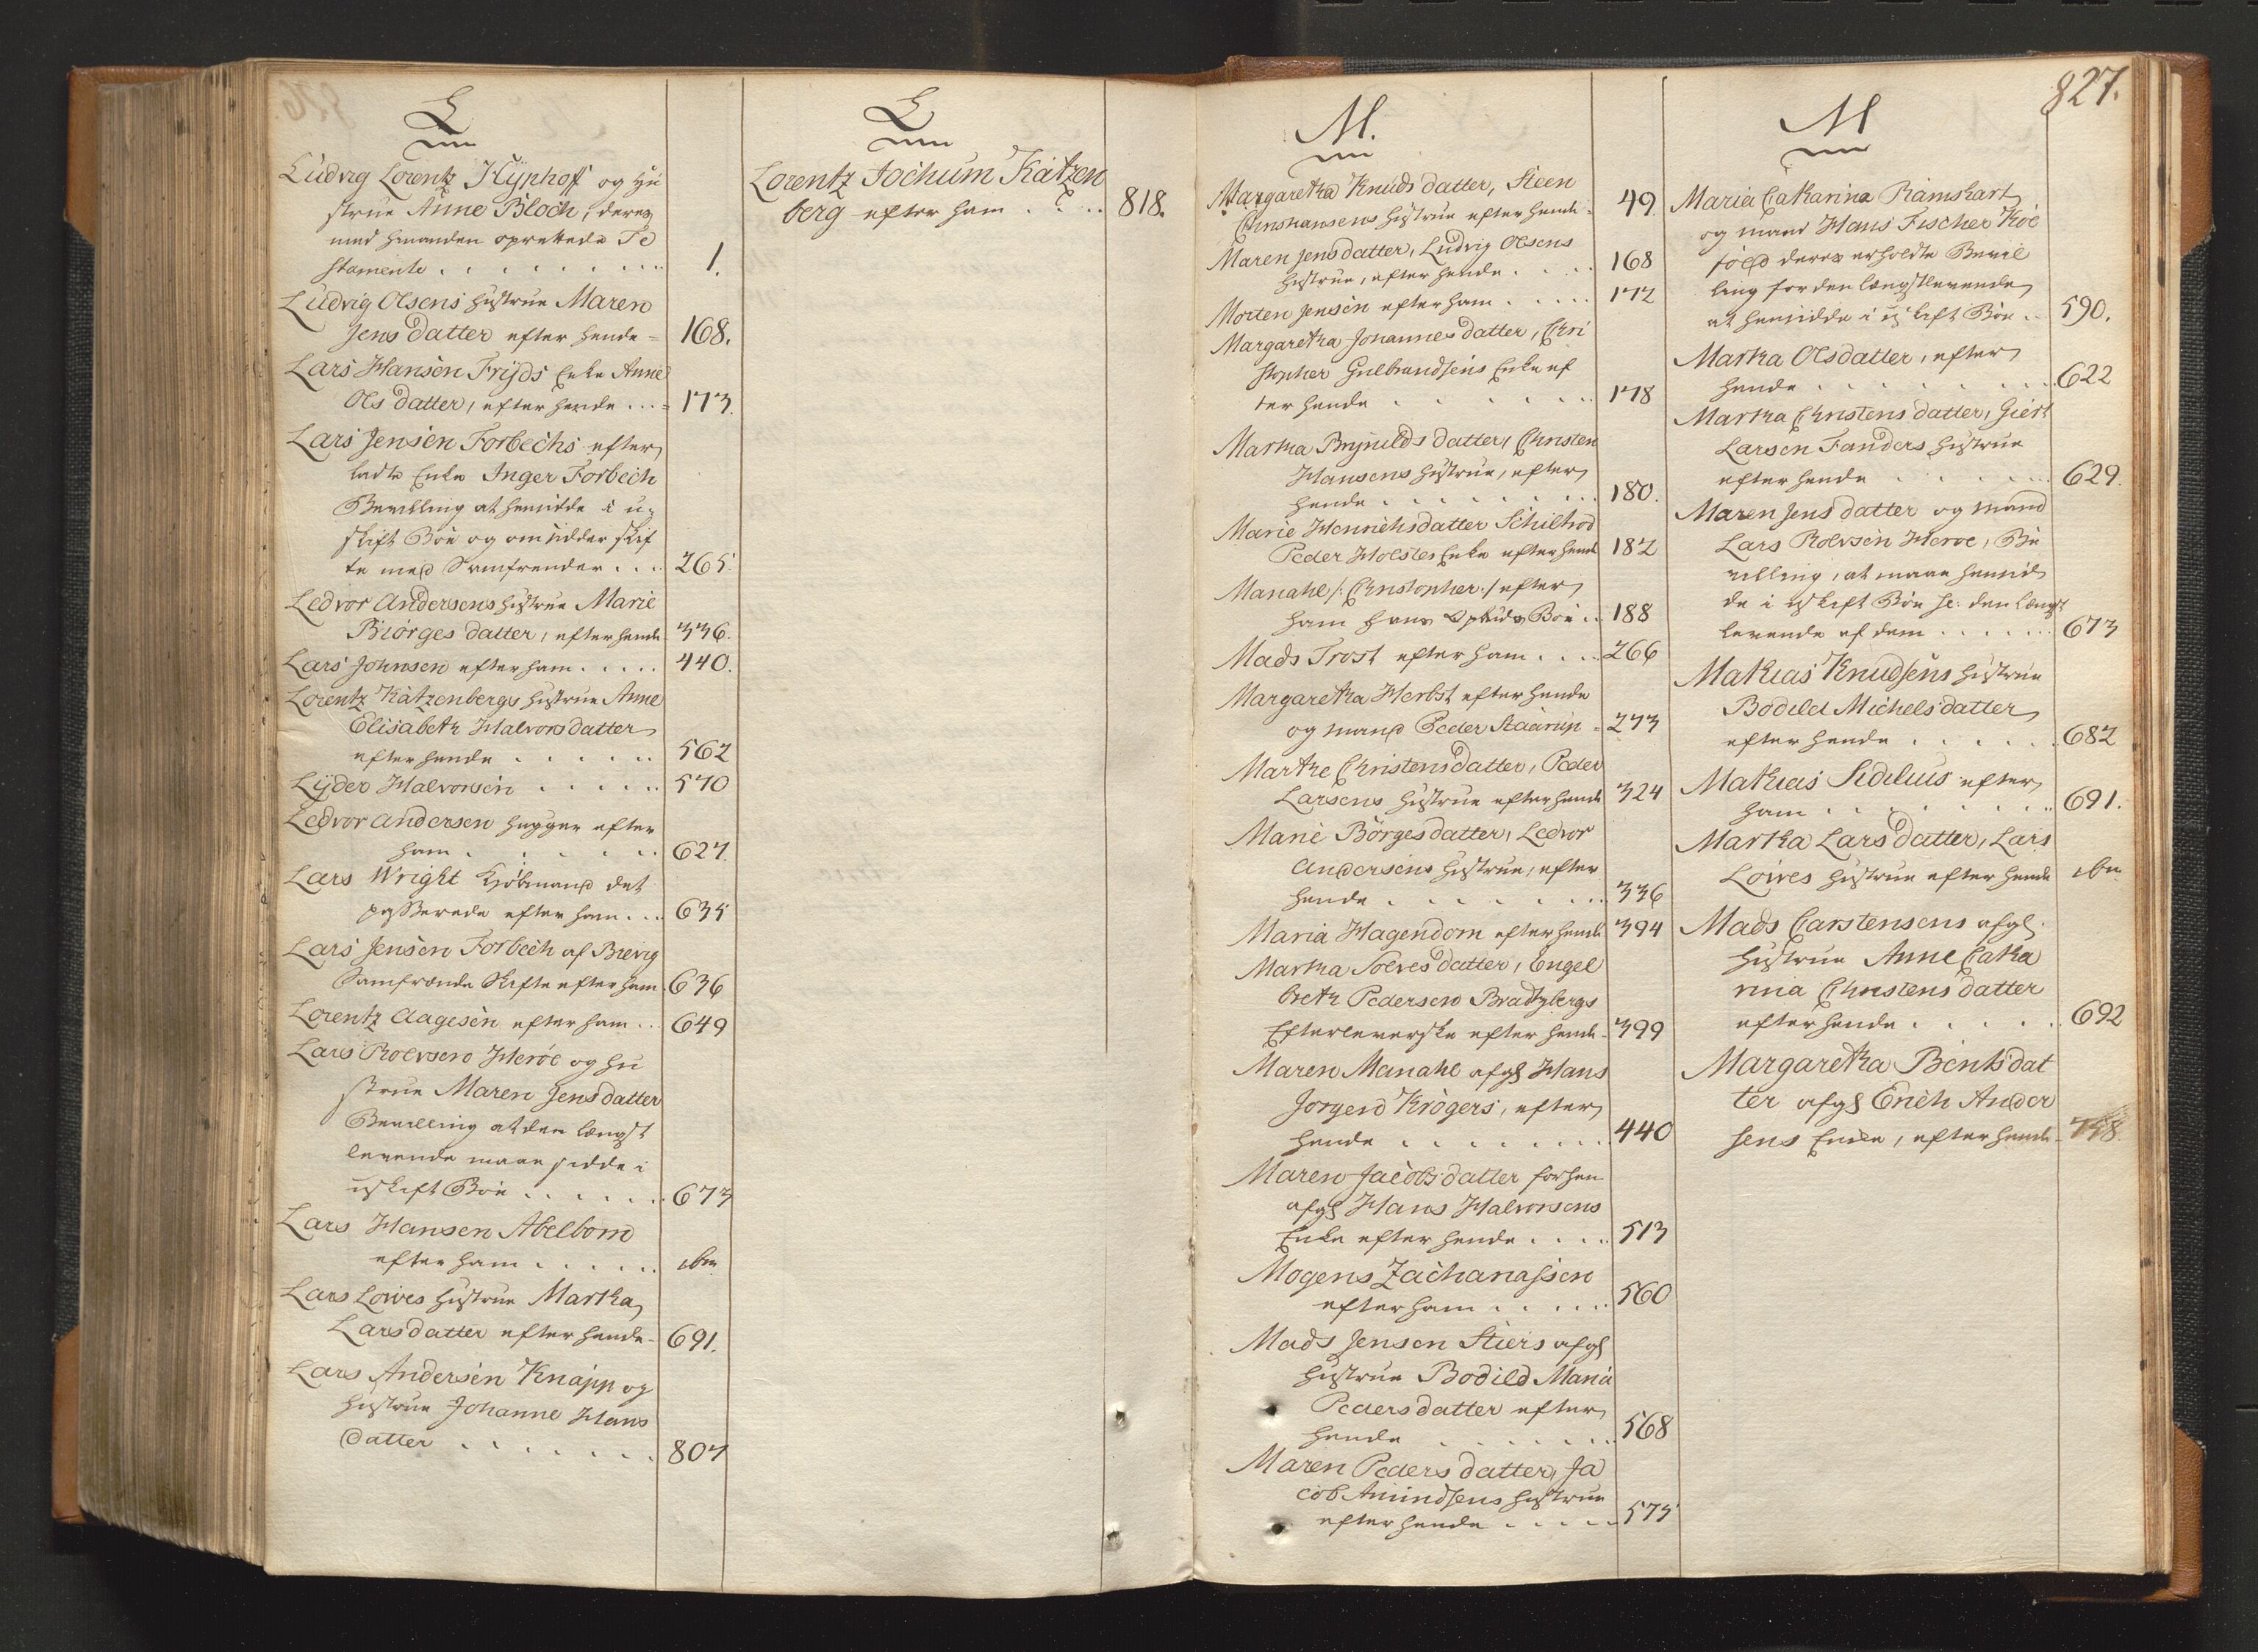 L
Ludvig Lorentz Hyphoff og Hu
strue Anne Bloch, deres
med hinanden oprettede Te
stamente . . . . . . . . 1.
Ludvig Olsens Hustrue Maren
Jens datter efter hende = 168.
Lars Hansen Frijds Enke Anne
Ols datter, efter hende . . . = 173.
Lars Jensen Forbechs efter
ladte Enke Inger Forbech
Bevilling at hensidde i u-
skift Boe og omsidder skif
te med Samfrender . . . 265.
Ledvor Andersens Hustrue Marie
Biörges datter, efter hende 336.
Lars Johnsen efter ham . . . . . 440.
Lorentz Katzenbergs Hustrue Anne
Elisabeth Halvorsdatter
efter hende . . . . . . 562
Lyder Halvorsen . . . . . . 570
Ledvor Andersen efter
ham . . . . . . 627.
Lars Wright Kjöbmand det
passerede efter ham . . . 635
Lars Jensen Forbech af Brevig
Samfrende Skifte efter ham 636
Lorentz Aagesen efter ham . . . 649
Lars Rolvsen Heröe og Hu
strue Maren Jensdatter
Bevilling at den længst
levende maae sidde i
uskift Boe . . . . . . 673
Lars Hansen Abelborn
efter ham . . . . . . ibm
Lars Loives Hustrue Martha
Larsdatter efter hende - 691.
Lars Andersen Knapp og
Hustrue Johanne Hans
datter . . . . . . . 807
L
Lorentz Jochum Katzen
berg efter ham . . . . 818.
827.
M.
Margaretha Knuds datter, Steen
Christiansens Hustrue efter hende - 49.
Maren Jensdatter, Ludvig Olsens
Hustrue, efter hende . . . . 168
Morten Jensen efter ham . . . . . 172
Margaretha Johannes datter, Chri
stopher Gulbrandsens Enke ef
ter hende . . . . . . . 178
Martha Brynilds datter, Christen
Hansens Hustrue, efter
hende . . . . . . . . 180.
Marie Henrichsdatter Schiltrod
Peder Holstes Enke efter hende 182
Manahl /: Christopher :/ efter
ham hans Boe . . 188
Mads Trost efter ham . . . . 266
Margaretha Herbst efter hende
og mand Peder Staarup = 273
Marthe Christensdatter, Peder
Larsens Hustrue efter hende 324
Marie Börges datter, Ledvor
Andersens Hustrue, efter
hende . . . . . . . . 336
Maria Hagendorn efter hende 394
Martha Solves datter, Engel
breth Pedersen Bradzbergs
Efterleverske efter hende - 399
Maren Manahl afg. Hans
Jorgen Krögers, efter
hende . . . . . . . . 440
Maren Jacobsdatter forhen
afg. Hans Halvorsens
Enke efter hende . . . . 513
Mogens Zachariassen
efter ham . . . . . 560
Mads Jensen Stiers afg.
Hustrue Bodild Maria
Peders datter efter
hende . . . . . . . 568
Maren Peders datter, Ja
cob Amundsens Hustrue
efter hende . . . . . 575
M
Maria Catharina Ramshart
og mand Hans Fischer Koe
foed deres erholdte Bevil
ling for den længstlevende
at hensidde i uskift Boe . . 590.
Martha Olsdatter, efter
hende . . . . . . . . 622
Martha Christens datter, Giert
Larsen Fanders Hustrue
efter hende . . . . . . 629.
Maren Jens datter og mand
Lars Rolvsen Heröe, Be
villing, at maae hensid
de i uskift Boe den længst
levende af dem . . . . . . 673
Mathias Knudsens Hustrue
Bodild Michelsdatter
efter hende . . . . . 682
Mathias Sidelius efter
ham . . . . . . . 691.
Martha Lars datter, Lars
Loives Hustrue efter hende ibm
Mads Carstensens afg.
Hustrue Anne Catha
rina Christens datter
efter hende . . . . . 692
Margaretha Bentsdat
ter afg. Erich Ander
sens Enke, efter hende -